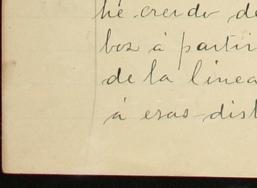 hé creido de
boz á partir
de la linea
á esas dist